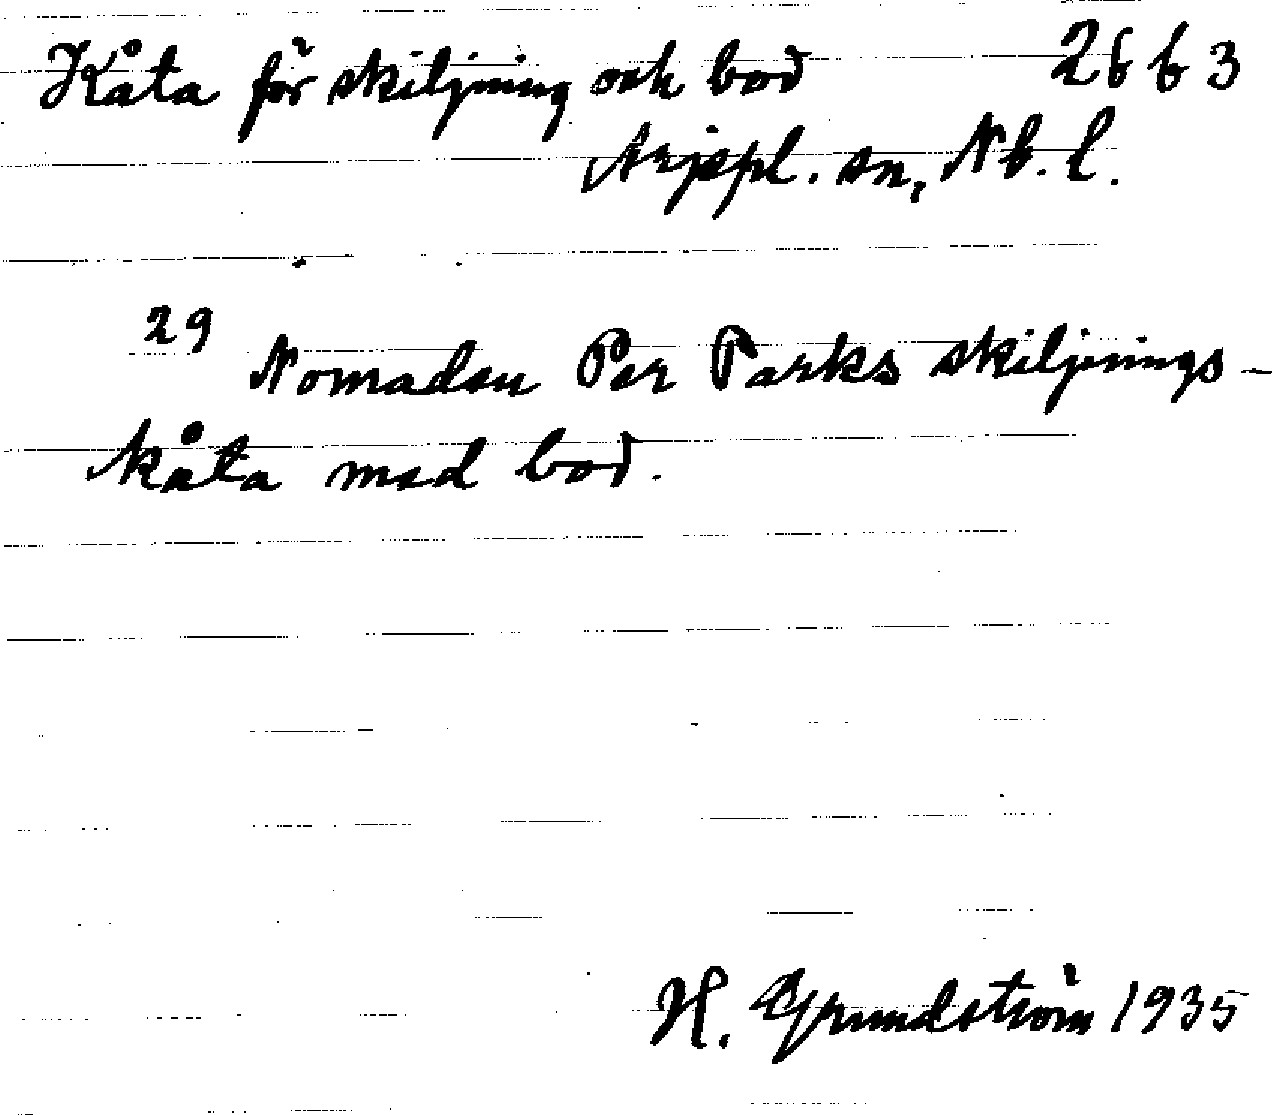 Kåta för skiljning och bod 2663
Arjepl. sn, Nb. l.
29
Nomaden Per Parks skiljnings-
kåta med bod.
H. Grundström 1935